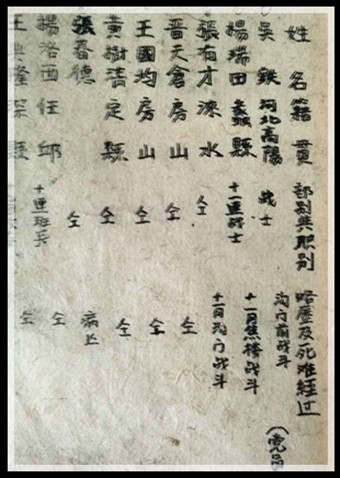 姓名 籍貫 部别與职别 略歷及死难經过
吳鉄 河北高陽 战士 沟门前战斗
楊瑞田 蠡縣 十一連战士 十一月焦楼战斗
張有才 淶水 仝 十一月沟门战斗
晋天倉 房山 仝 仝
王國均 房山 仝 仝
黄樹清 定縣 仝 仝
張春德 仝 病亡
楊洛西 任邱 十連班長 仝
王典隆 深縣 仝